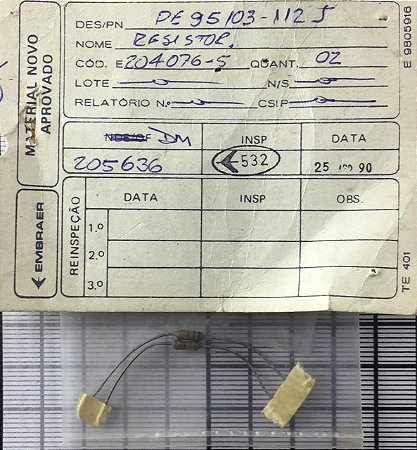 MATERIAL NOVO
APROVADO
EMBRAER
DES/PN PE95103-112J
NOME RESISTOR.
CÓD. E 204076-5 QUANT. 02
LOTE N/S
RELATÓRIO N.º CSIP
DM INSP DATA
205636 532 25 90
REINSPEÇÃO
DATA INSP. OBS.
1.º
2.º
3.º
E 9805916
TE 401